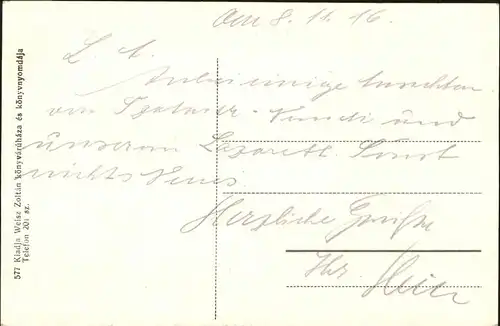 Am 8. 11. 16.
L. A.
Anbei einige Ansichten
von und
unserem Lazarett. Sonst
nichts Neues
Herzliche Grüße
Ihr
577 Kiadja Weisz Zoltán könyváruháza és könyvnyomdája
Telefon 20: sz.